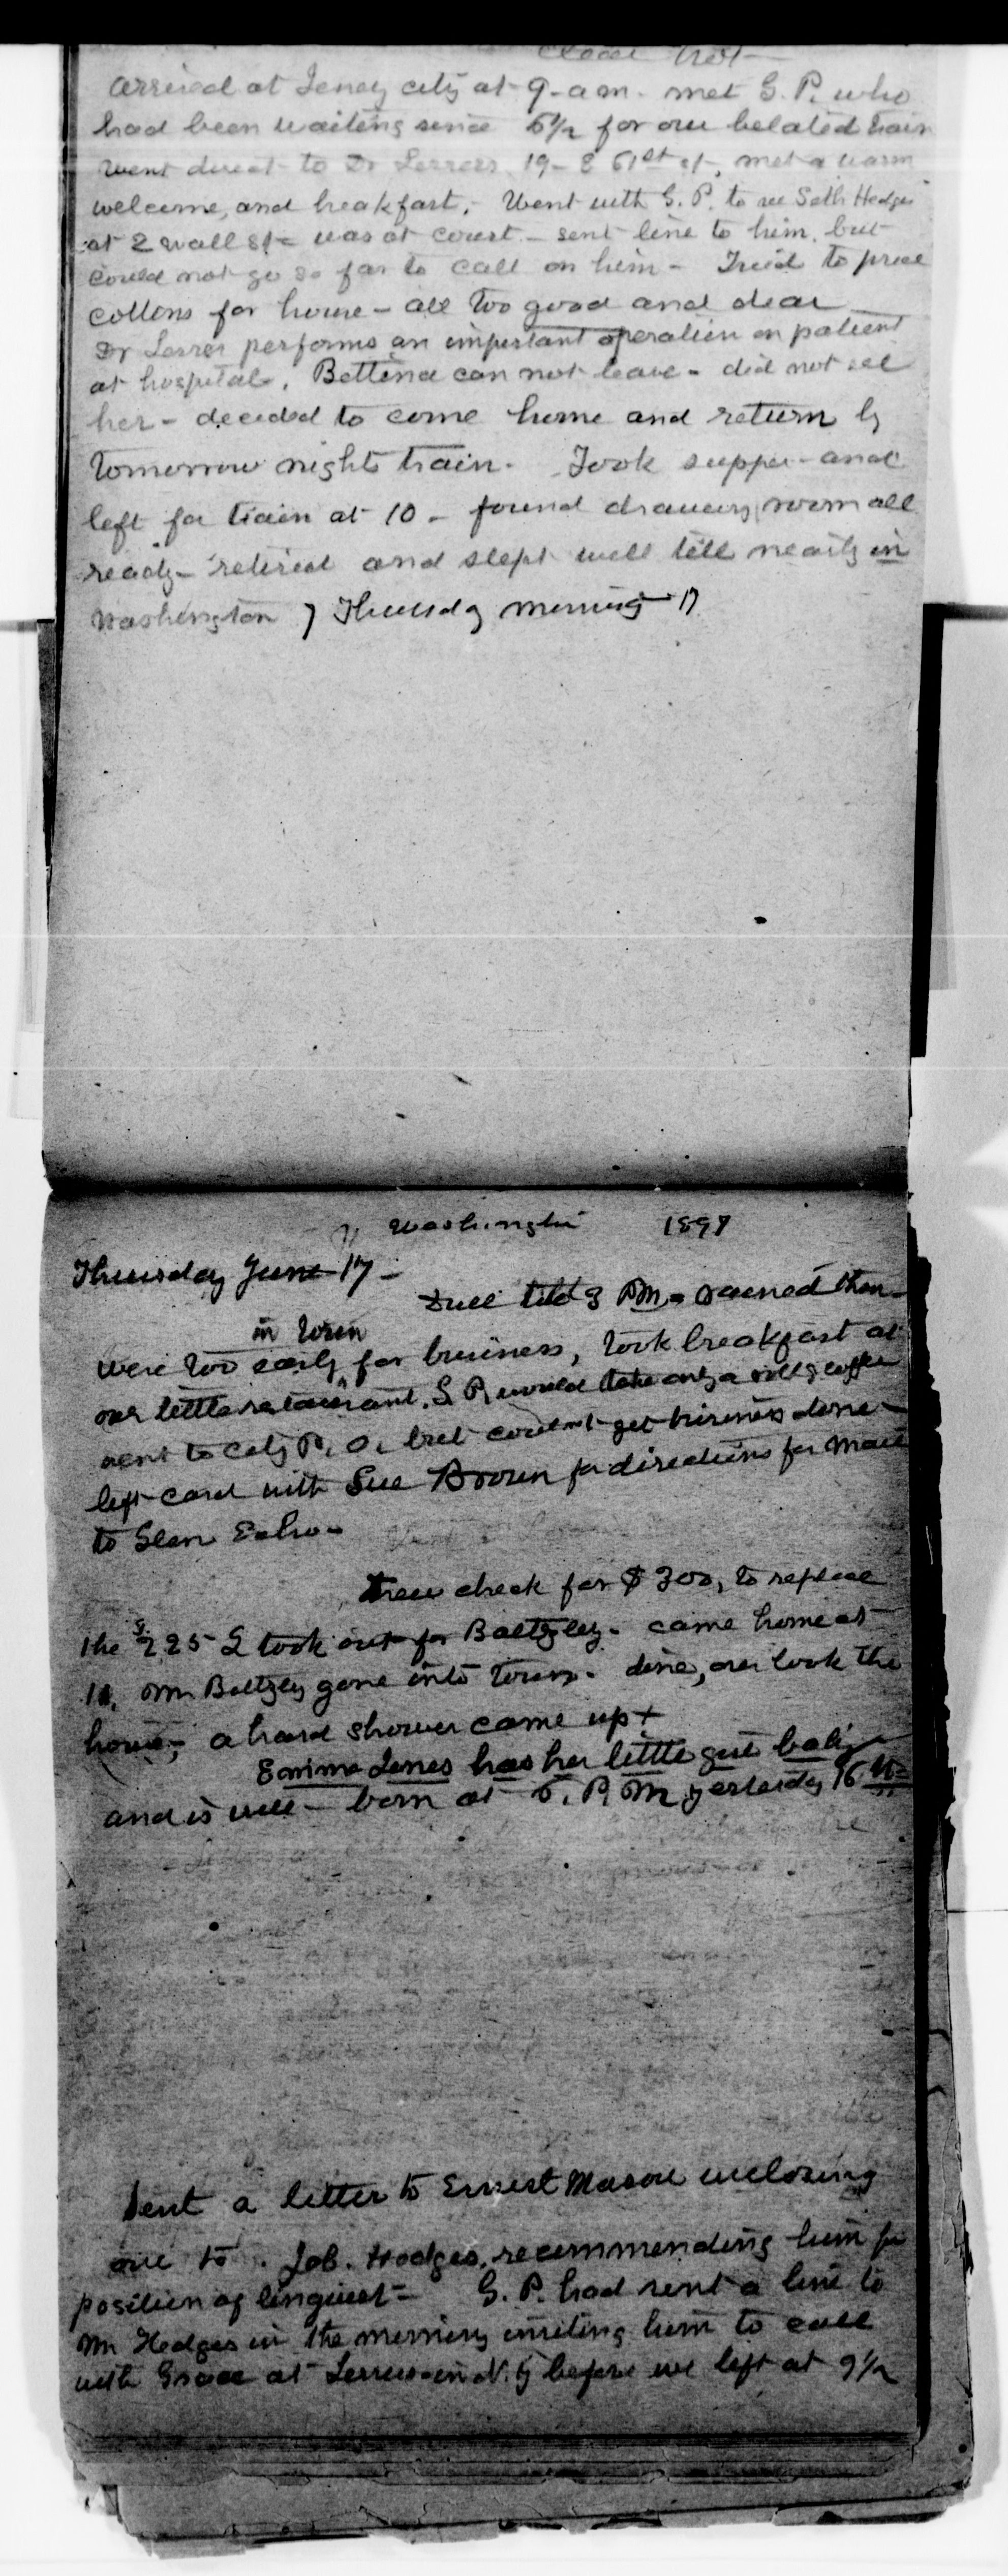 Clear hot -
arrived at Jersey city at 9 - a m - met G. P. who
had been waiting since 6½ for our belated train
went direct to Dr Lessers, 19 - E 61st st, met a warm
welcome, and breakfast. - Went with G. P. to see Hodges
at 2 wall st = was at court. - sent line to him, but
could not go so far to call on him - Tried to price
cottons for house - all too good and dear
Dr Lesser performs an important operation on patient
at hospital. Bettina can not leave - did not see
her - decided to come home and return by
tomorrow nights train. Took supper - and
left for train at 10 - found drawing room all
ready - retired and slept well till nearly in
Washington } Thursday morning 17
Washington 1897
Thursday June 17 -
Dull till 3 PM - rained then -
in town
were too early for business, took breakfast at
our little restaurant. G P, would take only a roll & coffee
went to City P. O. but couldnt get business done -
left card with Sue Brown for directions for mail
to Glen Echo -
Drew check for $ 300, to replace
the $225 I took out for Baltzley - came home at
11, Mr Baltzley gone into town - dine, over look the
house, - a hard shower came up +
Emma Jones has her little girl baby
and is well - born at 5. P. M yesterday 16th =
Sent a letter to Ernest Mason inclosing
one to Job. Hodges, recommending him for
position of linguist = G. P. had sent a line to
Mr Hodges in the morning inviting him to call
with Grace at Lessers - in N. Y before we left at 9½